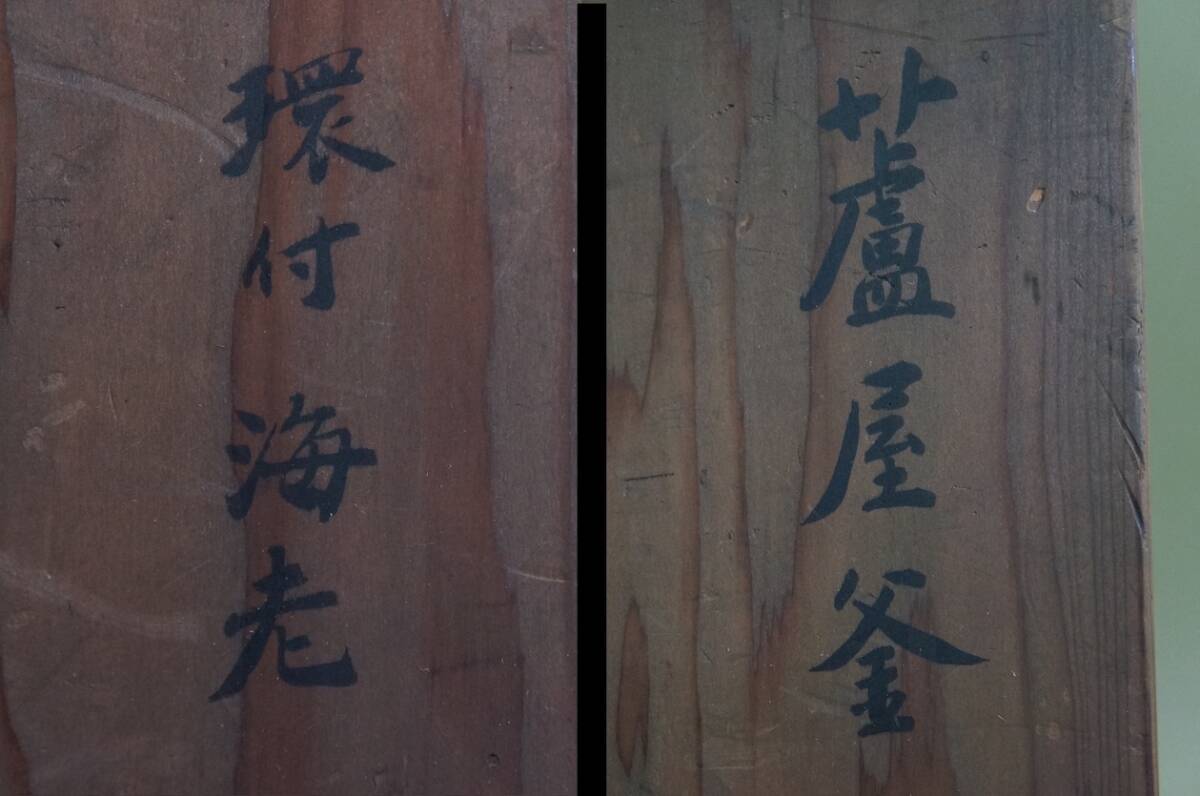 蘆屋釜
環付海老